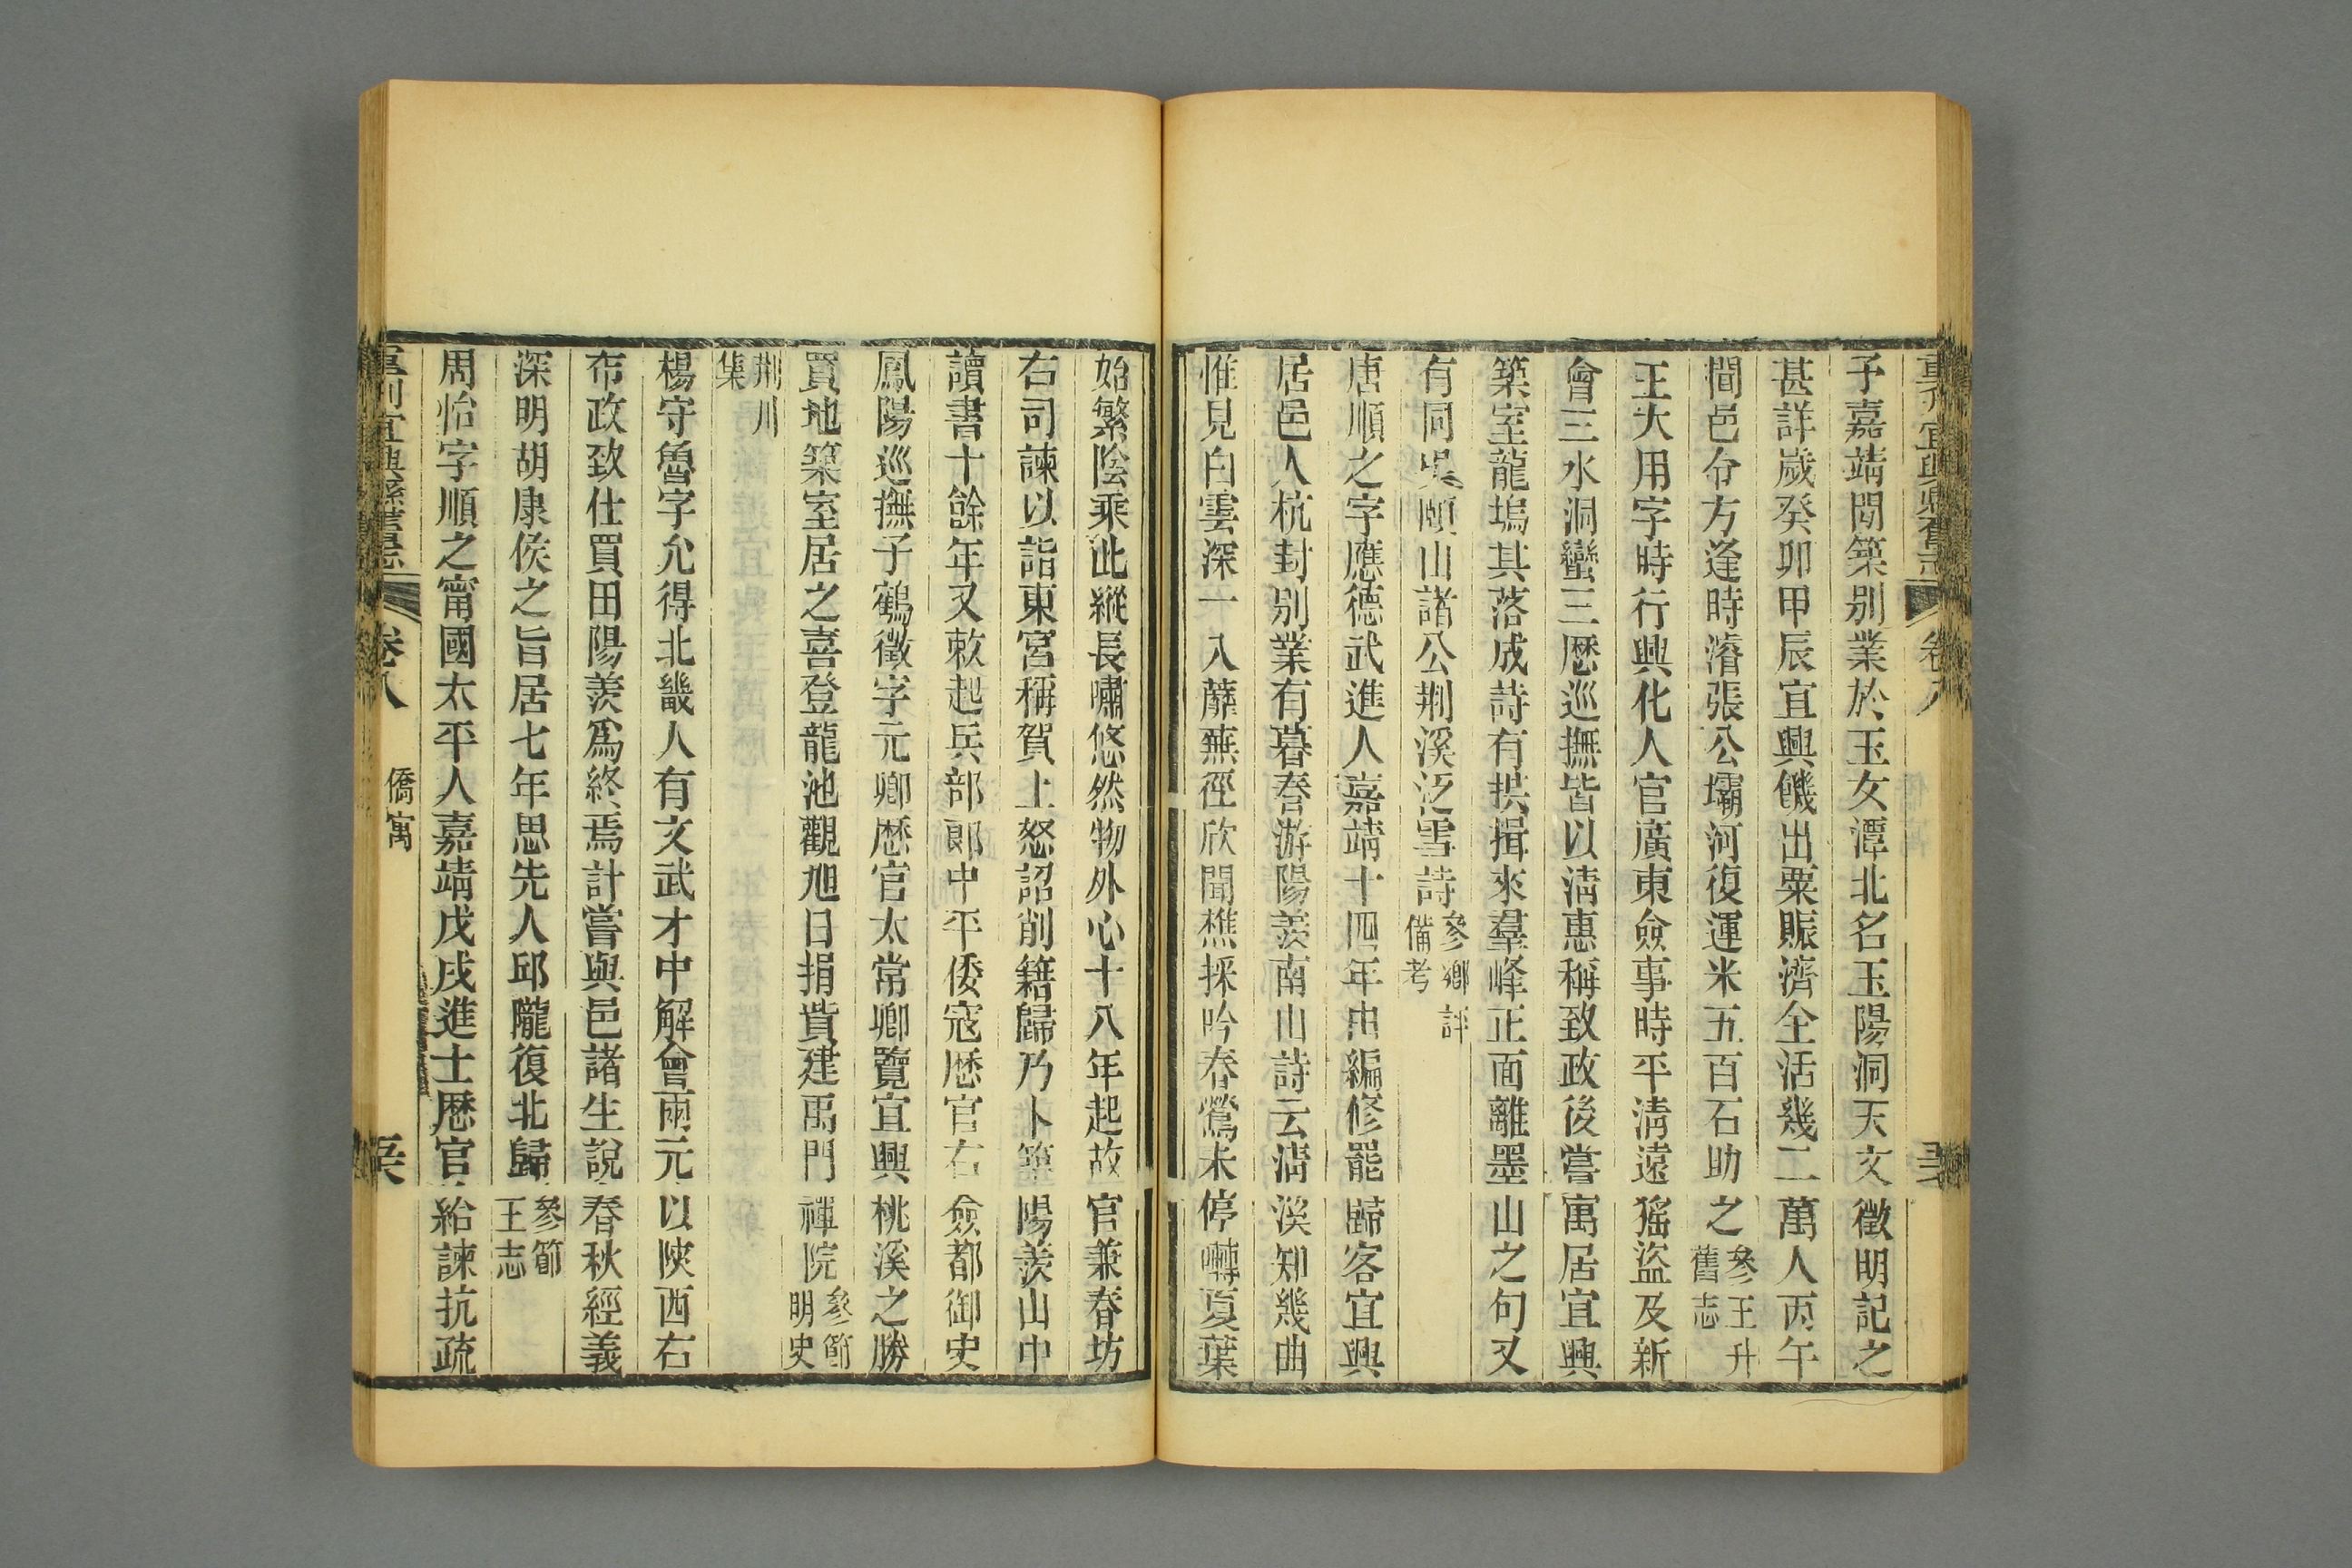 子嘉靖間築别業於玉女潭北名玉陽洞天文徵明記之
甚詳歲癸卯甲辰宜興饑出粟賑濟全活幾二萬人丙午
間邑令方逢時濬張公壩河復運米五百石助之參王升舊志
王大用字時行興化人官廣東僉事時平淸遠猺盜及新
會三水洞蠻三歷巡撫皆以淸惠稱致政後嘗寓居宜興
築室龍塢其落成詩有拱揖來羣峰正面離墨山之句又
有同吳頤山諸公荆溪泛雪詩參鄉評備考
唐順之字應德武進人嘉靖十四年由編修罷歸客宜興
居邑人杭封别業有暮春游陽羡南山詩云淸溪知幾曲
惟見白雲深一入蘼蕪徑欣聞樵採吟春鶯未停囀夏葉
始繁陰乘此縱長嘯悠然物外心十八年起故官兼春坊
右司諫以詣東宮稱賀上怒詔削籍歸乃卜築陽羡山中
讀書十餘年又敕起兵部郎中平倭寇歷官右僉都御史
鳳陽巡撫子鶴徵字元卿歷官太常卿覽宜興桃溪之勝
買地築室居之喜登龍池觀旭日捐貲建禹門禪院參節明史
荆川集
楊守魯字允得北畿人有文武才中解會兩元以陝西右
布政致仕買田陽羡爲終焉計嘗與邑諸生說春秋經義
深明胡康侯之旨居七年思先人邱隴復北歸參節王志
周怡字順之甯國太平人嘉靖戊戌進士歷官給諫抗疏
重刊宜興縣舊志 卷八 僑寓